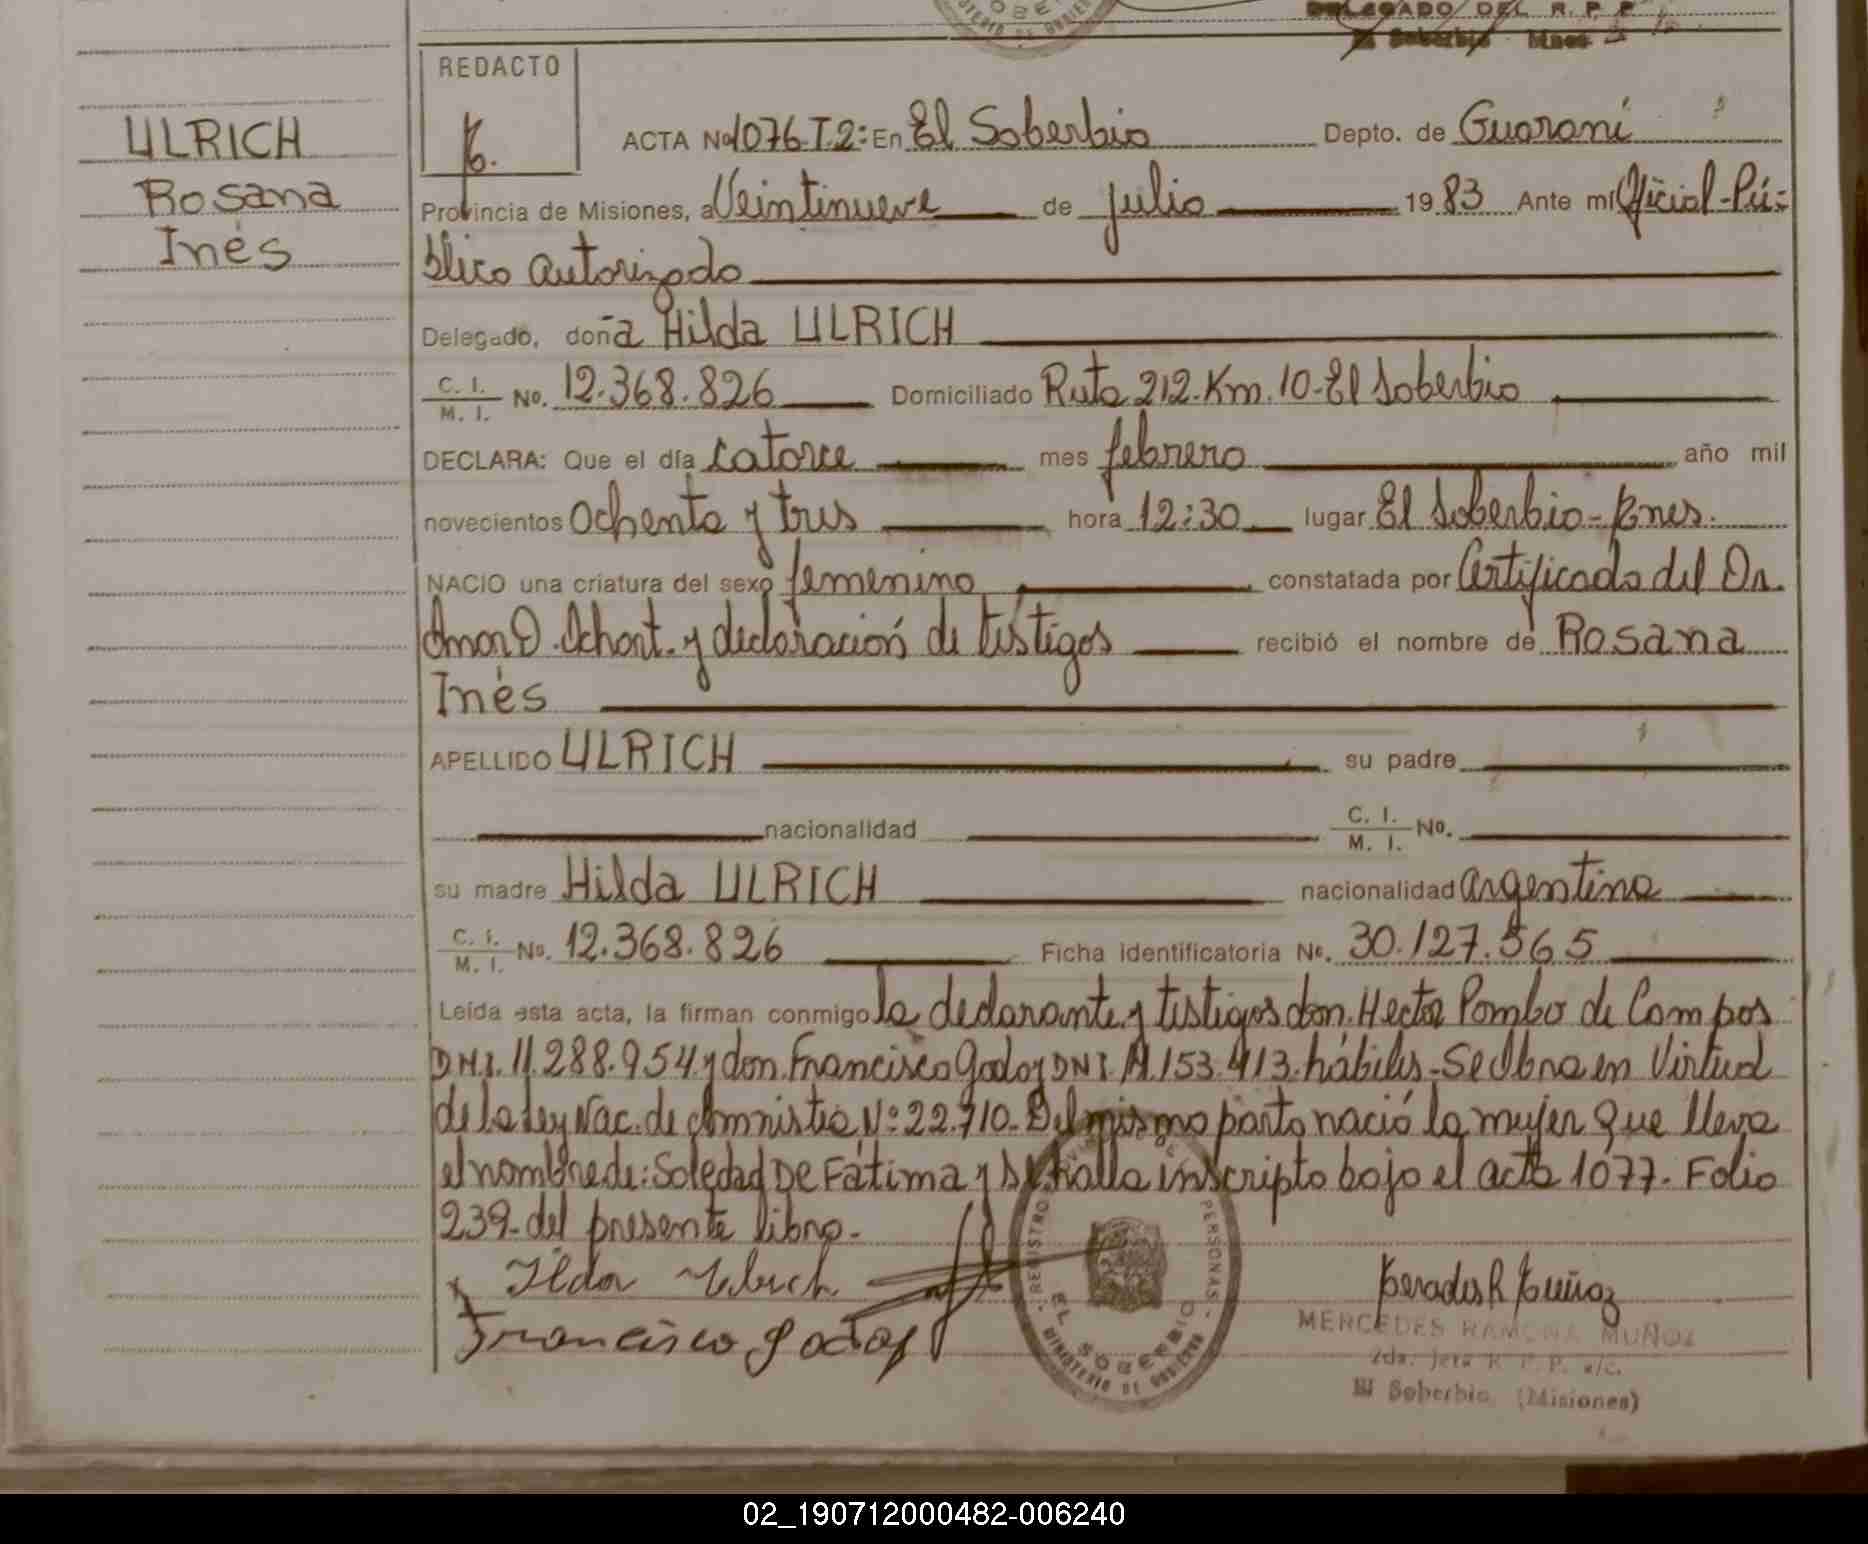 DELEGADO DEL R. P. P.
El Soberbio Mnes
REDACTO
ULRICH
Rosana
Inés
ACTA No 1076.T.2: En El Soberbio Depto. de Guaraní
Provincia de Misiones, a Veintinueve de julio 19 83 Ante mí Oficial-Pú=
blico autorizado
Delegado, doña Hilda ULRICH
C. I. / M. I. No. 12.368.826 Domiciliado Ruta 212.Km.10-El Soberbio
DECLARA: Que el día catorce mes febrero año mil
novecientos ochenta y tres hora 12:30 lugar El Soberbio-
NACIO una criatura del sexo femenino constatada por Certificado del Dr.
Omar O. y declaración de testigos recibió el nombre de Rosana
Inés
APELLIDO ULRICH su padre
nacionalidad C. I. / M. I. No.
su madre Hilda ULRICH nacionalidad argentina
C. I. / M. I. No. 12.368.826 Ficha identificatoria No. 30.127.565
Leída esta acta, la firman conmigo la declarante y testigos don. Hector Pombo de Campos
D.N.I. 11.288.954 y don. Francisco Godoy DNI. 153.413. hábiles-Se labra en Virtud
de la ley Nac. de Amnistia Nº 22.710. Del mismo parto nació la mujer que lleva
el nombre de: Soledad De Fátima y se halla inscripta bajo el acta 1077. Folio
239- del presente libro.
Ilda Ulrich
Francisco Godoy
REGISTRO PERSONAS
EL SOBERBIO
MINISTERIO DE GOBIERNO
MERCEDES RAMONA MUÑOZ
2da. Jefa R. P. P. a/c.
El Soberbio, (Misiones)
02_190712000482-006240